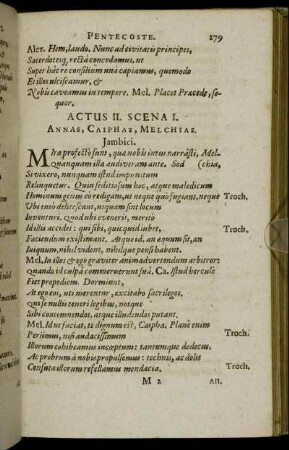 PENTECOSTE. 179
Alex. Hem, laudo. Nunc ad civitatis principes,
Sacerdotesq; rectà concedamus, ut
Super hâc re consilium unà capiamus, quomodo
Et illos ulciscamur, &
Nobis caveamus in tempore. Mel. Placet Præcede, se-
quor.
ACTUS II. SCENA I.
ANNAS, CAIPHAS, MELCHIAS.
Jambici.
Mira profectò sunt, quæ nobis intus narrâsti, Mel-
Quanquam illa audiveram ante. Sed (chia,
Si vixero, nunquam istud impunitum
Relinquetur. Quin seditiosum hoc, atque maledicum
Hominum genus coëredigam, ut neque quò fugiant, neque Troch.
Ubi in eô delitescant, usquam sint locum
Inventuri. Quod ubi evenerit, meritò
Id illis accidet: qui sibi, quicquid lubet, Troch.
Faciendum existimant. Atque id, an equum sit, an
Iniquum, nihil vident, nihilque pensi habent.
Mel. In illos & ego graviter animadvertendum arbitror:
Quando id culpâ commeruerunt suâ. Ca. Istud hercule
Fiet propediem. Dormiunt,
At ego eos, uti merentur, excitabo sacrilegos,
Qui se nullis teneri legibus, nosque
Sibi contemnendos, atque illudendos putant.
Mel. Id ut facias, te dignum est, Caipha. Planè enim
Periimus, nisi audacissimum Troch.
Istorum cohibeamus inceptum: tantumque dedecus,
Ac probrum à nobis propulsemus: technis, ac dolis
Confutatis istorum refellamus mendacia. Troch.
M 2 An.